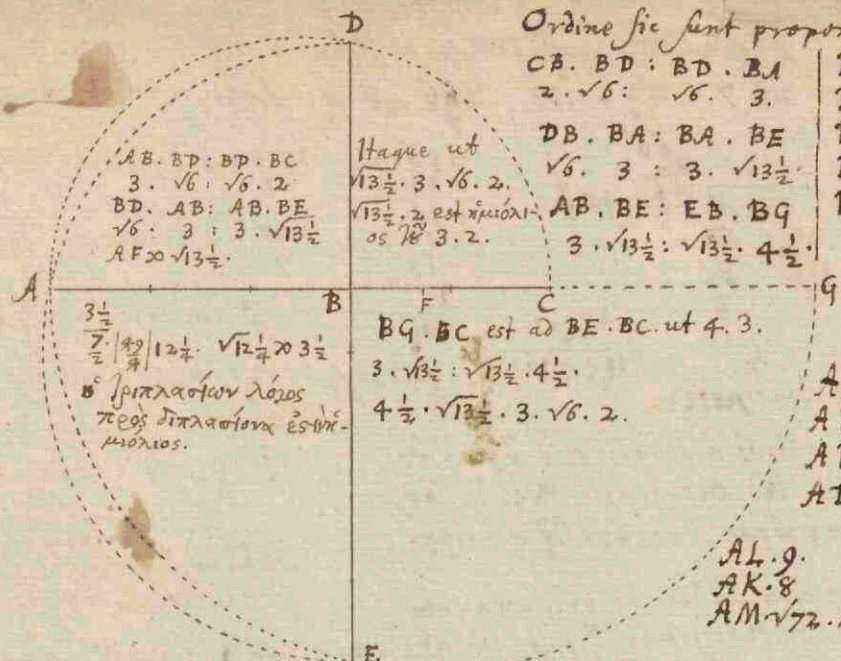 D
Ordine sic sunt propor
CB. BD : BD. BA
2. √6 : √6. 3.
DB. BA : BA. BE
√6. 3 : 3. √13½.
AB. BE : EB. BG
3. √13½ : √13½. 4½.
AB. BD : BD. BC
3. √6 : √6. 2
BD. AB : AB. BE
√6. 3 : 3. √13½
AF ∞ √13½.
Itaque ut
√13½. 3. √6. 2.
√13½. 2 est ἡμιόλι-
ος 3. 2.
A
B
F
C
G
3½
7/2. |49/4| 12¼. √12¼ ∞ 3½
τριπλασίων λόγος
πρὸς διπλασίονα ἐστὶν ἡ-
μιόλιος.
BG. BC est ad BE. BC. ut 4. 3.
3. √13½ : √13½. 4½.
4½. √13½. 3. √6. 2.
A
A
A
A
AL. 9.
AK. 8
AM √72.
E